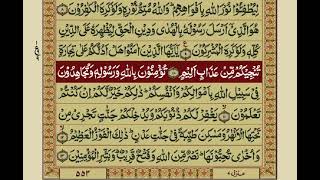 لِيُطْفِـُٔوْا نُوْرَ اللّٰهِ بِاَفْوَاهِهِمْ وَاللّٰهُ مُتِمُّ نُوْرِهٖ وَلَوْ كَرِهَ الْكٰفِرُوْنَ
هُوَ الَّذِيْٓ اَرْسَلَ رَسُوْلَهٗ بِالْهُدٰى وَدِيْنِ الْحَقِّ لِيُظْهِرَهٗ عَلَى الدِّيْنِ
كُلِّهٖ وَلَوْ كَرِهَ الْمُشْرِكُوْنَ يٰٓاَيُّهَا الَّذِيْنَ اٰمَنُوْا هَلْ اَدُلُّكُمْ عَلٰى تِجَارَةٍ
تُنْجِيْكُمْ مِّنْ عَذَابٍ اَلِيْمٍ تُؤْمِنُوْنَ بِاللّٰهِ وَرَسُوْلِهٖ وَتُجَاهِدُوْنَ
فِيْ سَبِيْلِ اللّٰهِ بِاَمْوَالِكُمْ وَاَنْفُسِكُمْ ذٰلِكُمْ خَيْرٌ لَّكُمْ اِنْ كُنْتُمْ
تَعْلَمُوْنَ يَغْفِرْ لَكُمْ ذُنُوْبَكُمْ وَيُدْخِلْكُمْ جَنّٰتٍ تَجْرِيْ مِنْ
تَحْتِهَا الْاَنْهٰرُ وَمَسٰكِنَ طَيِّبَةً فِيْ جَنّٰتِ عَدْنٍ ذٰلِكَ الْفَوْزُ الْعَظِيْمُ
وَاُخْرٰى تُحِبُّوْنَهَا نَصْرٌ مِّنَ اللّٰهِ وَفَتْحٌ قَرِيْبٌ وَبَشِّرِ الْمُؤْمِنِيْنَ
منزل ٧
٥٥٣